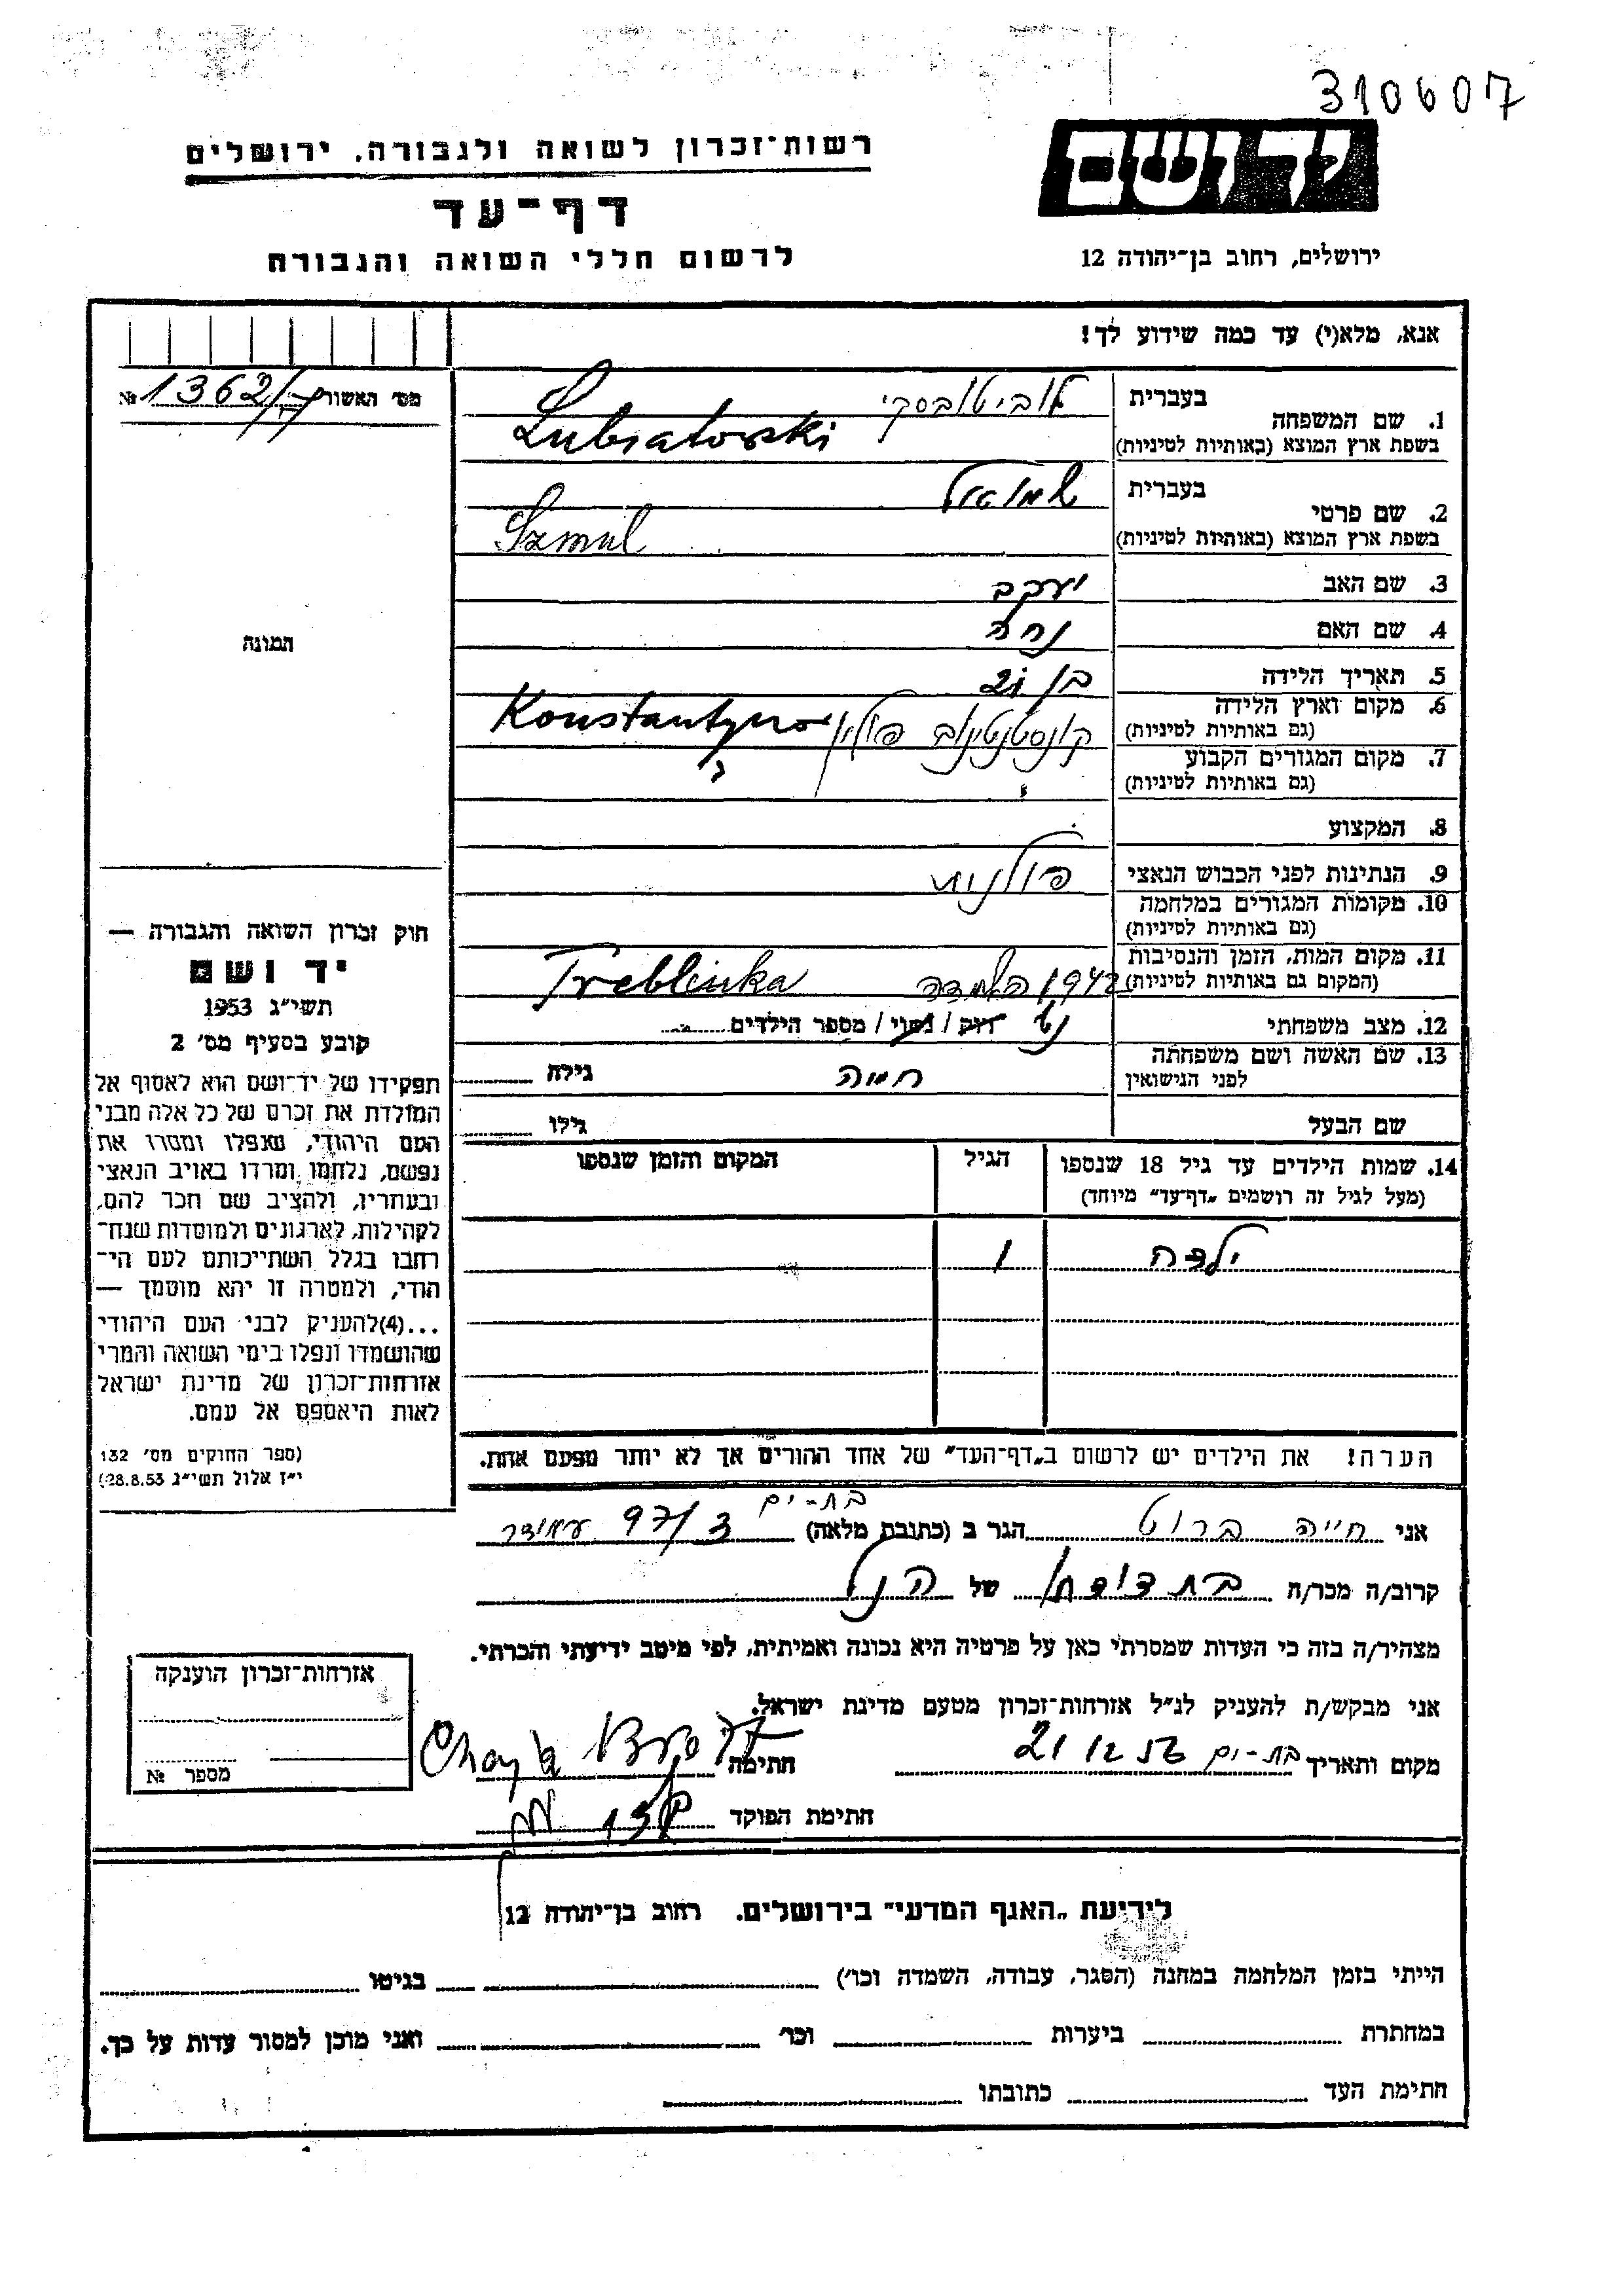 310607
יד ושם
רשות־זכרון לשואה ולגבורה, ירושלים
דף־עד
לרשום חללי השואה והגבורה
ירושלים, רחוב בן־יהודה 12
אנא, מלא(י) עד כמה שידוע לך!
מס׳ האשור 1362/ №
בעברית לוביטובסקי
1. שם המשפחה
בשפת ארץ המוצא (באותיות לטיניות) Lubiatowski
בעברית שמואל
2. שם פרטי
בשפת ארץ המוצא (באותיות לטיניות) Szmul
3. שם האב יעקב
4. שם האם
5. תאריך הלידה בן
6. מקום וארץ הלידה קונסטנטינוב פולין Konstantynow
(גם באותיות לטיניות)
7. מקום המגורים הקבוע
(גם באותיות לטיניות)
8. המקצוע
9. הנתינות לפני הכבוש הנאצי פולנית
10. מקומות המגורים במלחמה
(גם באותיות לטיניות)
11. מקום המות, הזמן והנסיבות
(המקום גם באותיות לטיניות) 1942 השמדה Treblinka
12. מצב משפחתי נ׳ רווק / נשוי / מספר הילדים
13. שם האשה ושם משפחתה
לפני הנישואין חווה גילה
שם הבעל גילו
14. שמות הילדים עד גיל 18 שנספו הגיל המקום והזמן שנספו
(מעל לגיל זה רושמים „דף־עד״ מיוחד)
ילדה 1
הערה! את הילדים יש לרשום ב„דף־העד״ של אחד ההורים אך לא יותר מפעם אחת.
התמונה
חוק זכרון השואה והגבורה —
יד ושם
תשי״ג 1953
קובע בסעיף מס׳ 2
תפקידו של יד־ושם הוא לאסוף אל
המולדת את זכרם של כל אלה מבני
העם היהודי, שנפלו ומסרו את
נפשם, נלחמו ומרדו באויב הנאצי
ובעוזריו, ולהציב שם וזכר להם,
לקהילות, לארגונים ולמוסדות שנח־
רבו בגלל השתייכותם לעם הי־
הודי, ולמטרה זו יהא מוסמך —
...(4) להעניק לבני העם היהודי
שהושמדו ונפלו בימי השואה והמרי
אזרחות־זכרון של מדינת ישראל
לאות היאספם אל עמם.
(ספר החוקים מס׳ 132
י״ז אלול תשי״ג 28.8.53)
בת-ים
אני חייה ברוט הגר ב (כתובת מלאה) 97/3
קרוב/ה מכר/ה בת דודתו של הנ״ל
מצהיר/ה בזה כי העדות שמסרתי כאן על פרטיה היא נכונה ואמיתית, לפי מיטב ידיעתי והכרתי.
אני מבקש/ת להעניק לנ״ל אזרחות־זכרון מטעם מדינת ישראל.
מקום ותאריך בת-ים 21 חתימה Chaya
חתימת הפוקד
אזרחות־זכרון הוענקה
מספר №
לידיעת „האגף המדעי״ בירושלים, רחוב בן־יהודה 12
הייתי בזמן המלחמה במחנה (הסגר, עבודה, השמדה וכו׳) בגיטו
במחתרת ביערות וכו׳ ואני מוכן למסור עדות על כך.
חתימת העד כתובתו